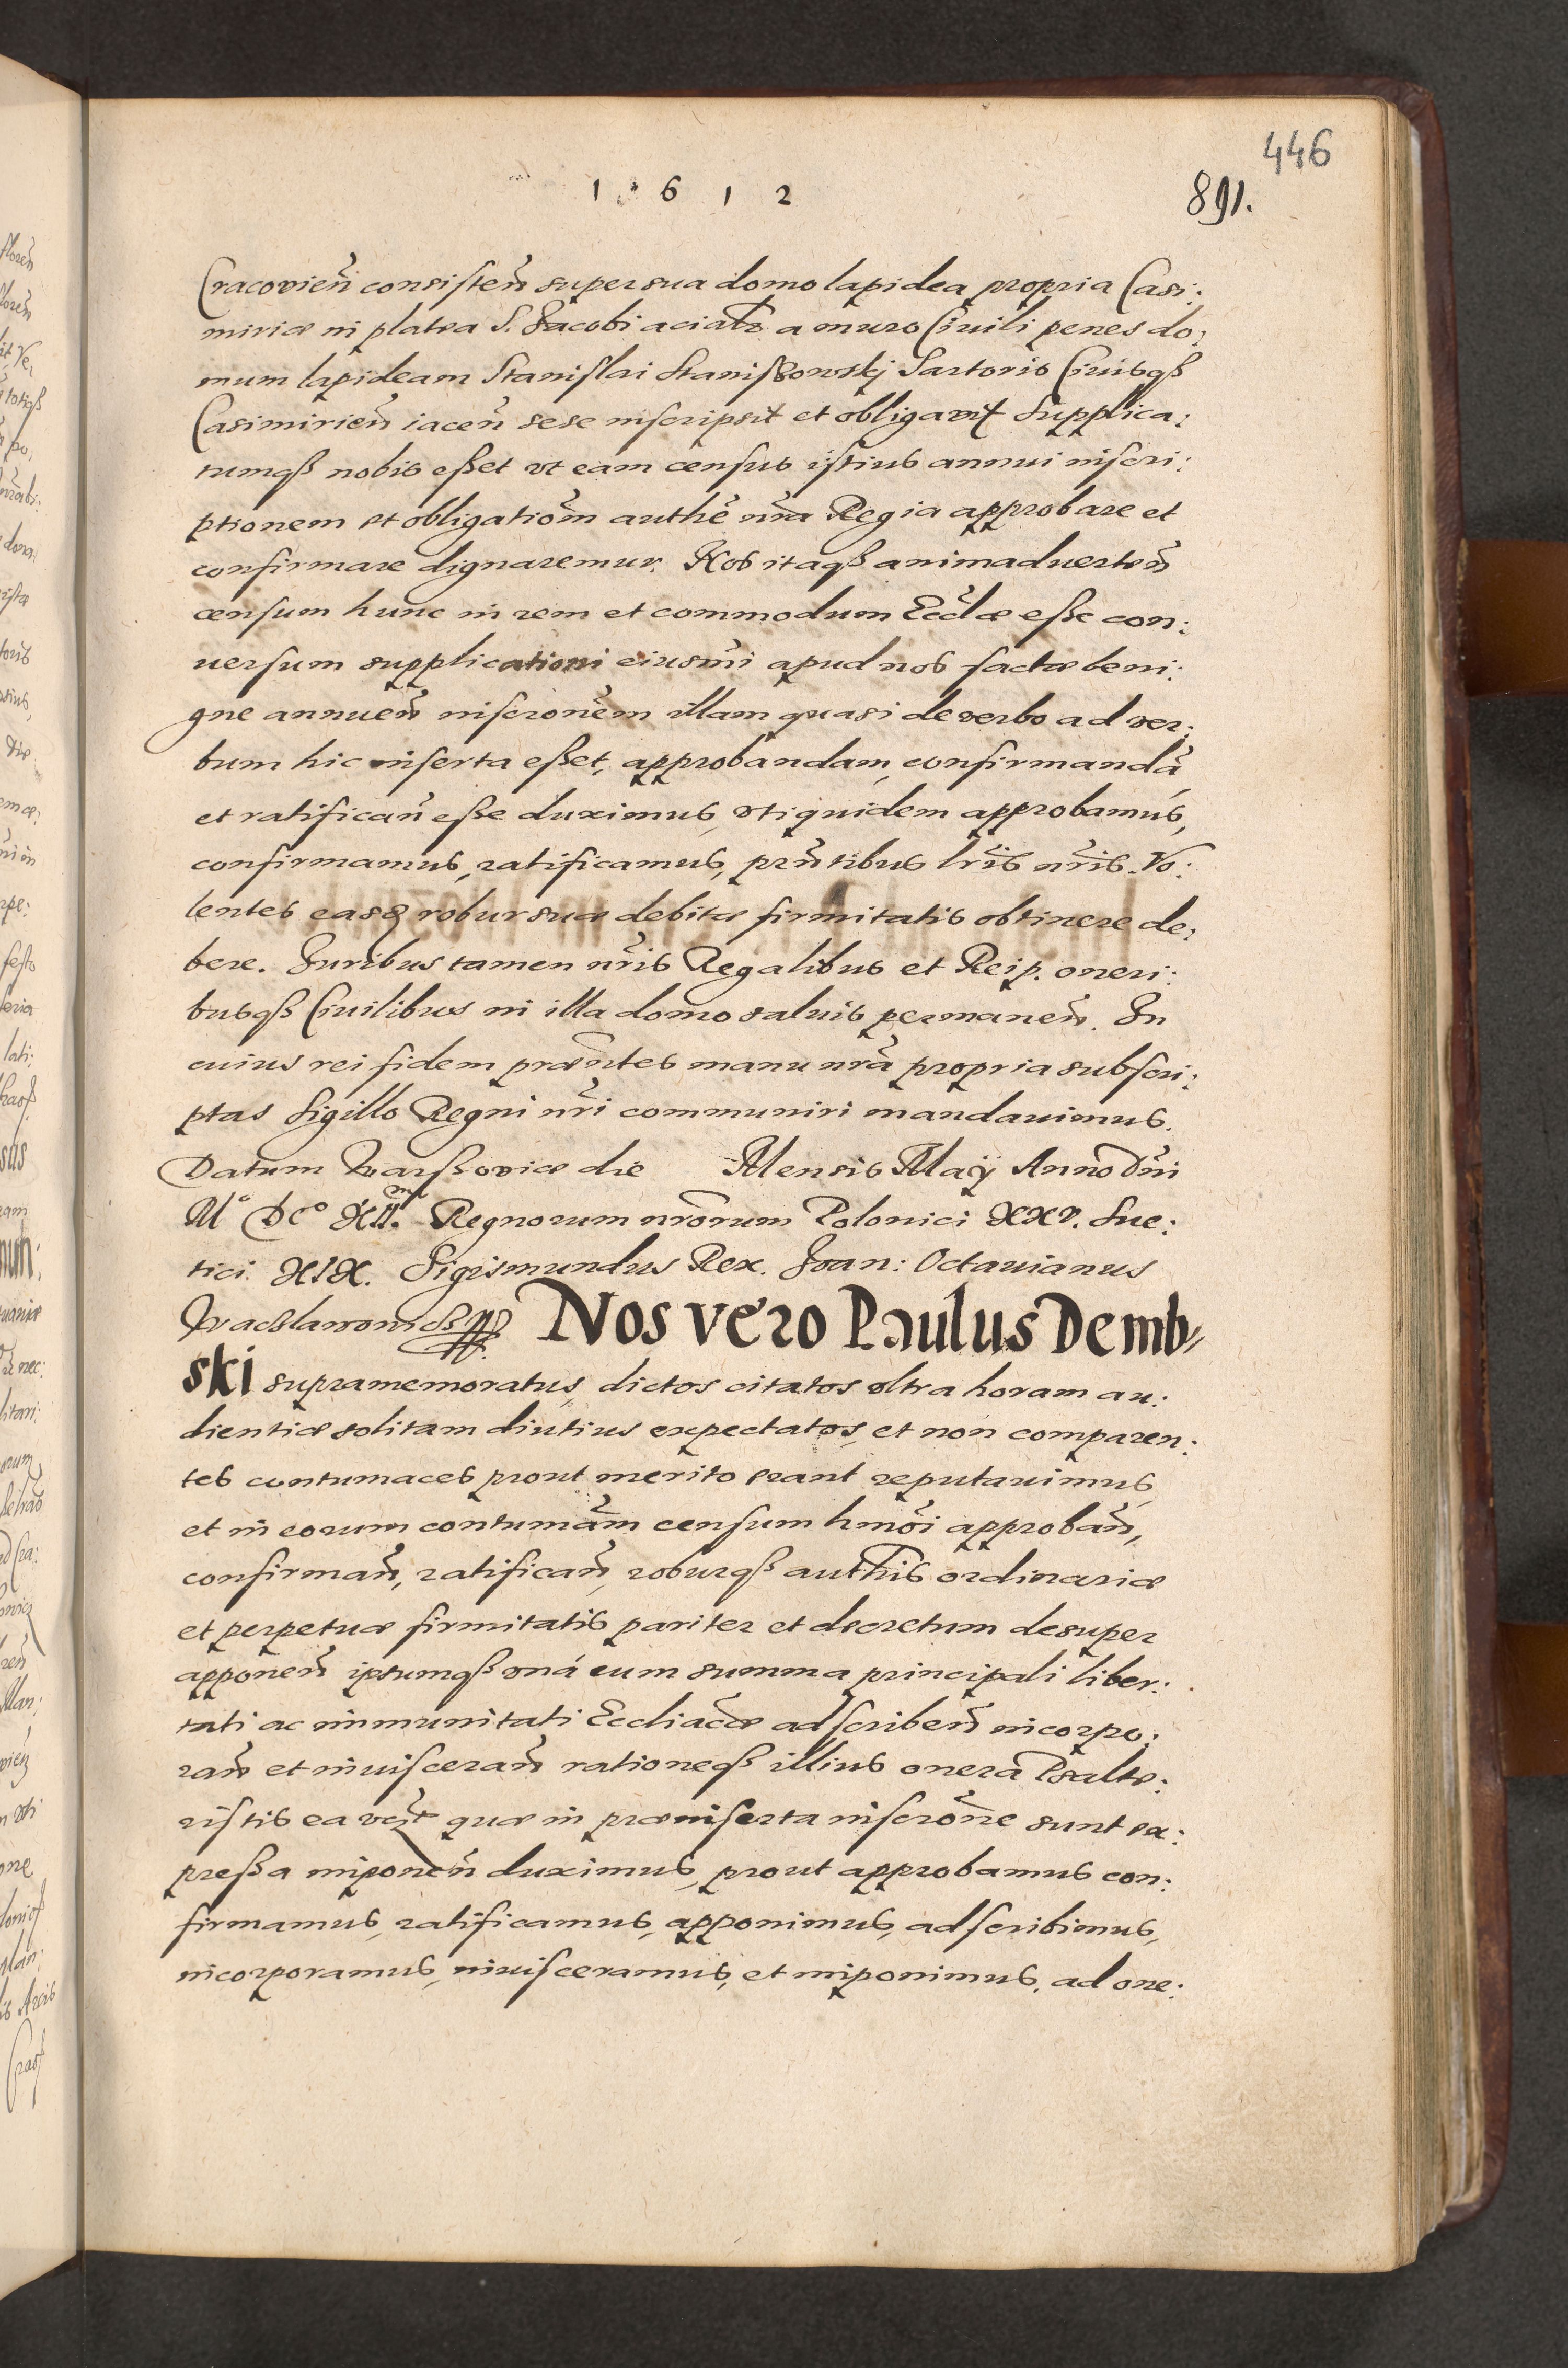 446
1 6 1 2
891.
Cracovień consisteń super sua domo lapidea propria Casi:
miriæ in platea S. Jacobi a muro Ciuili penes do:
mum lapideam Stanislai Stanißowskj Sartoris Ciuisqß
Casimirień iaceń sese inscripsit et obligavit Supplica:
tumqß nobis eßet vt eam census istius annui inscri:
ptionem et obligatiom̃ authẽ nr̃a Regia approbare et
confirmare dignaremur. Nos itaqß animaduerteñ
censum hunc in rem et commodum Eccl̃æ eße con:
uersum supplicationi eiusmĩ apud nos factæ beni:
gne annueñ inscronẽm illam quasi de verbo ad ver:
bum hic inserta eßet, approbandam, confirmandã
et ratificañ eße duximus, vti quidem approbamus,
confirmamus, ratificamus, prñtibus lr̃is nr̃is. Vo:
lentes easq robur suæ debitæ firmitatis obtinere de:
bere. Juribus tamen nr̃is Regalibus et Reip. oneri:
busqß Ciuilibus in illa domo saluis permaneñ. In
cuius rei fidem præñtes manu nr̃a propria subscri:
ptas Sigillo Regni nr̃i communiri mandauimus.
Datum Warßoviæ die Mensis Maÿ Anno Dñi
M° DC° XII. Regnorum nrõrum Polonici XXV. Sue:
tici XIX. Sigismundus Rex. Joan: Octauianus
Waczlawowicz Nos vero Paulus Demb
ski supramemoratus, dictos citatos vltra horam au:
dientiæ solitam diutius expectatos, et non comparen:
tes contumaces prout merito erant reputauimus,
et in eorum contumãm censum hmõi approbañ,
confirmañ, ratificañ, roburqß autħis ordinariæ
et perpetuæ firmitatis pariter et decretum desuper
apponeñ ipsumqß vná cum summa principali liber:
tati ac immunitati Eccliacæ adscribeñ incorpo:
rañ et inuiscerañ rationeqß illius onera Psalte:
ristis ea quæ in præinserta inscrõne sunt ex:
preßa imponeñ duximus, prout approbamus con:
firmamus, ratificamus, apponimus, adscribimus,
incorporamus, inuisceramus, et imponimus, ad one: